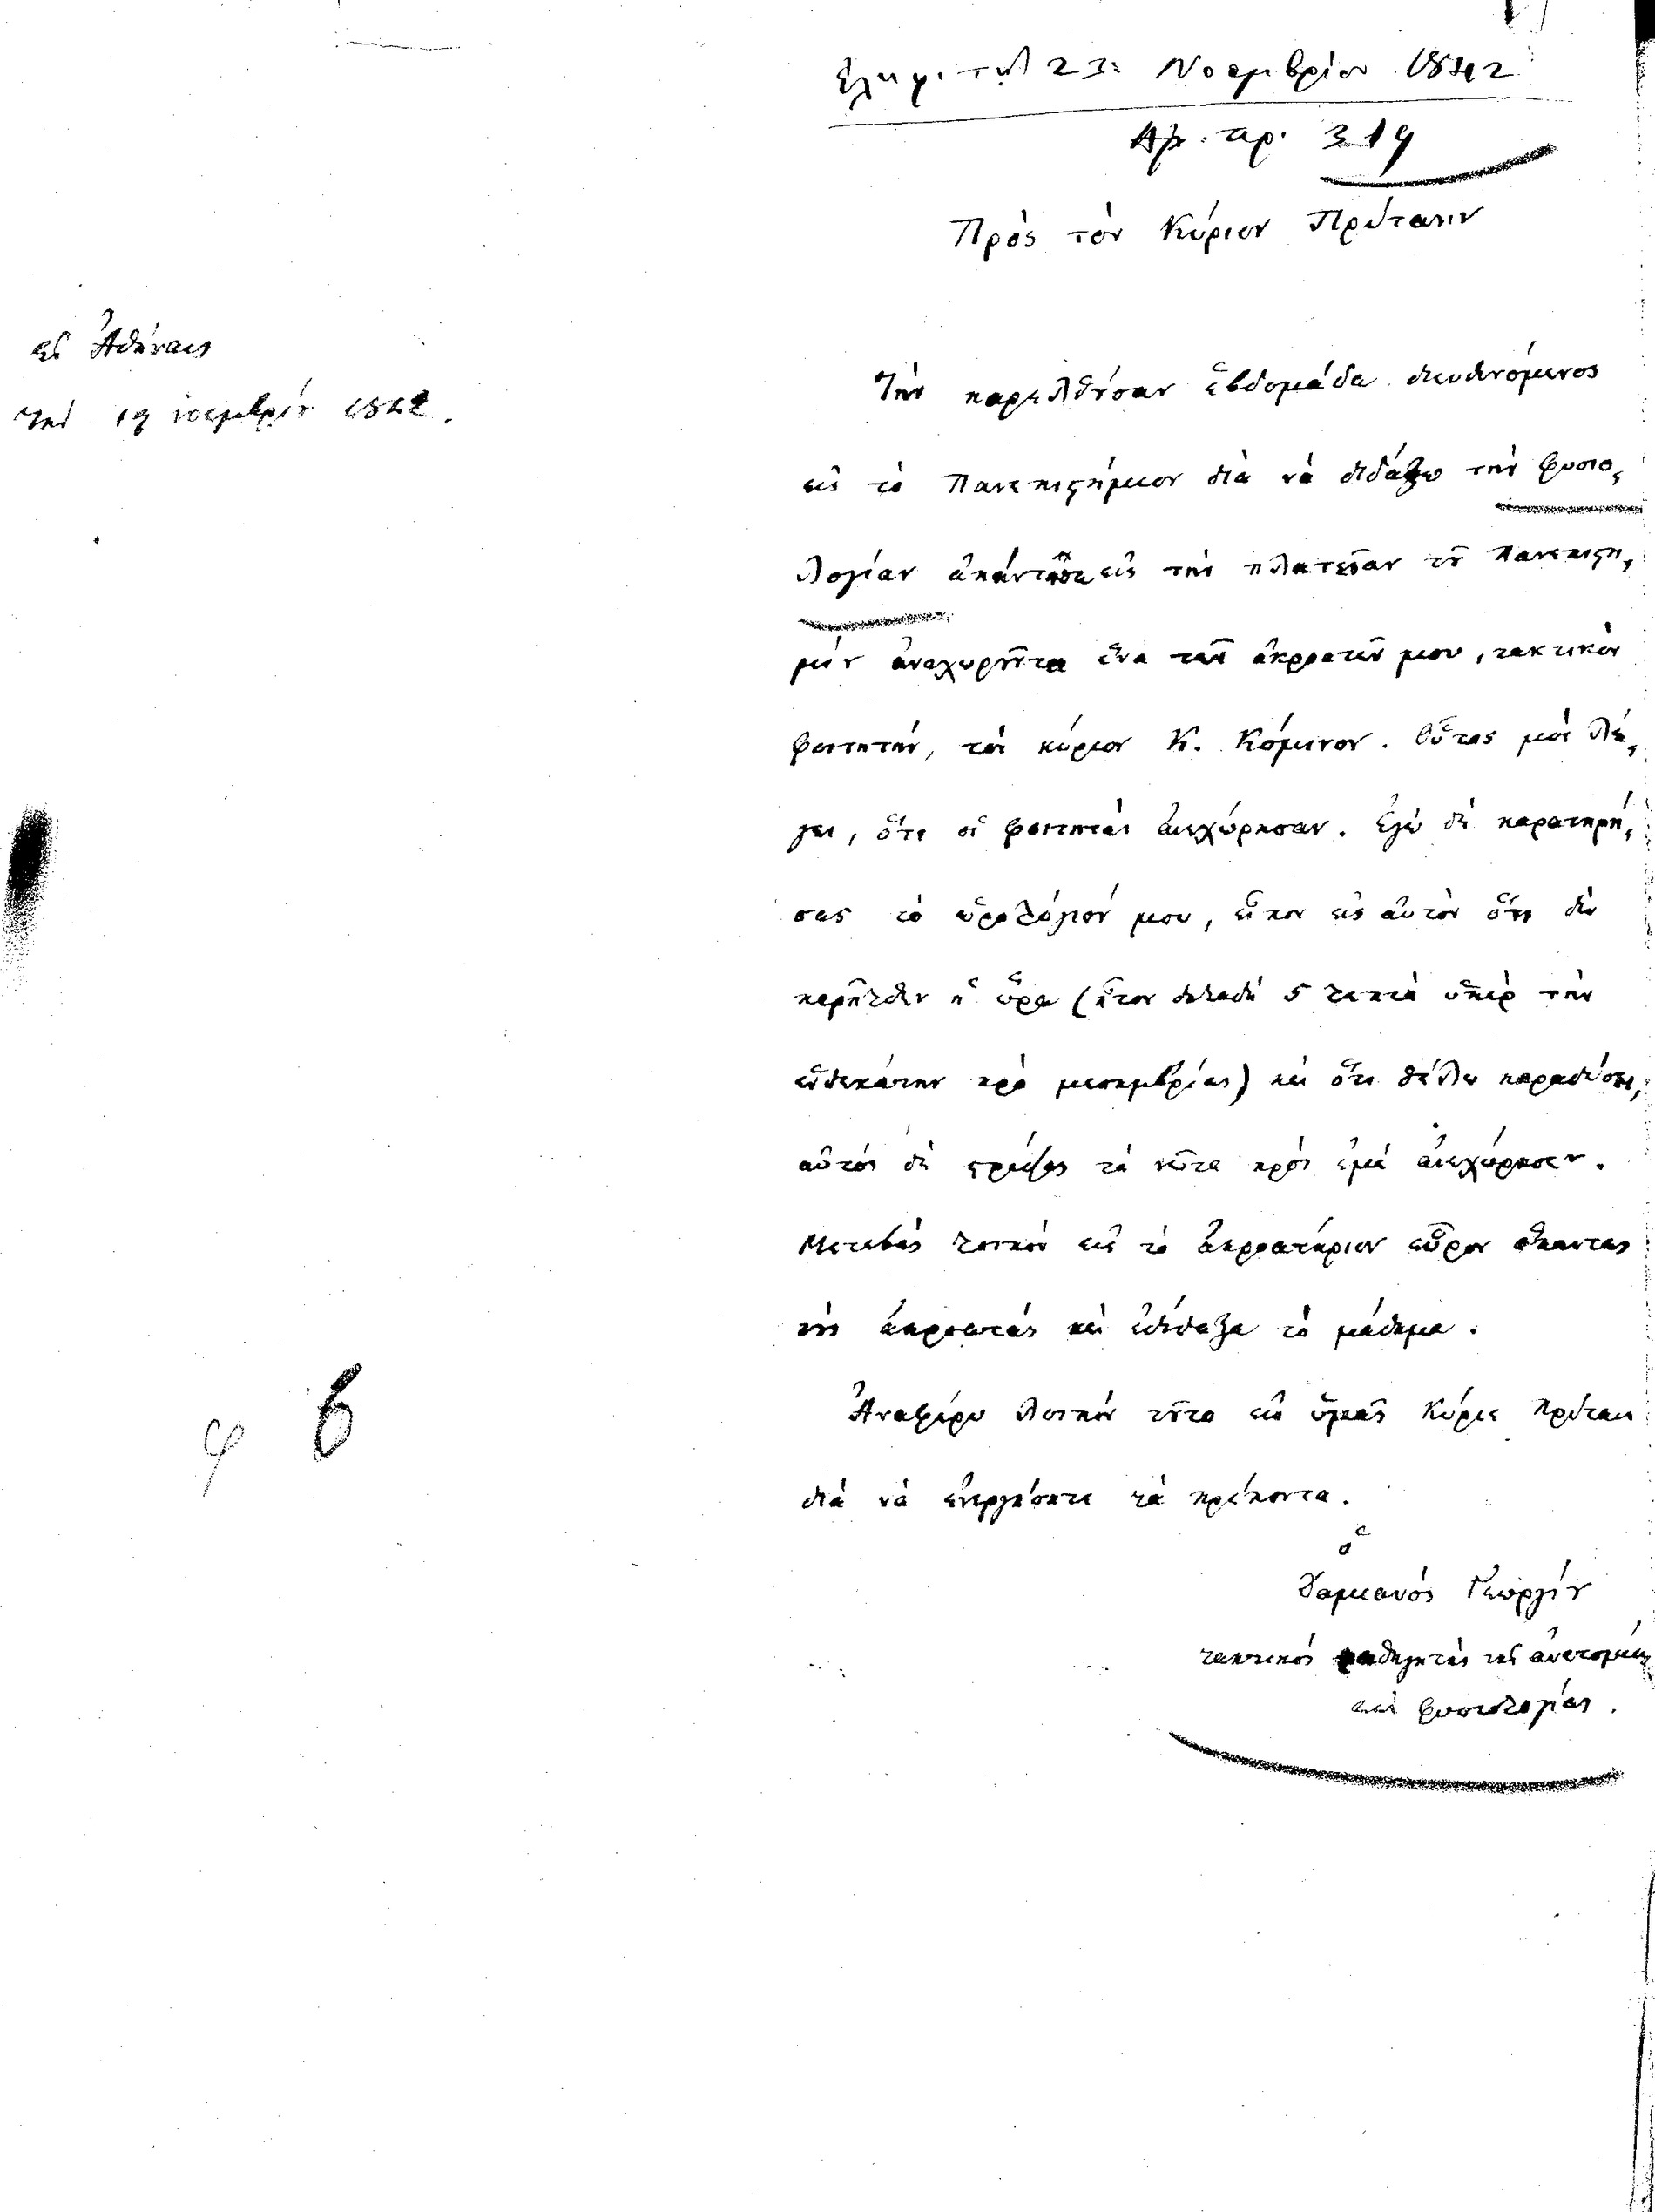 ἐλήφ. τῇ 23 Νοεμβρίου 1842
Ἀρ. πρ. 319
Πρὸς τὸν Κύριον Πρύτανιν
ἐν Ἀθήναις
τῇ 19 νοεμβρίου 1842.
Τὴν παρελθοῦσαν ἑβδομάδα διευθυνόμενος
εἰς τὸ Πανεπιστήμιον διὰ νὰ διδάξω τὴν φυσιο,
λογίαν ἀπάντησα εἰς τὴν πλατεῖαν τοῦ πανεπιστη,
μίου ἀναχωροῦντα ἕνα τῶν ἀκροατῶν μου, τακτικὸν
φοιτητήν, τὸν κύριον Κ. Κόμινον. Οὗτος μοὶ λέ,
γει, ὅτι οἱ φοιτηταὶ ἀνεχώρησαν. Ἐγὼ δὲ παρατηρή,
σας τὸ ὡρολόγιόν μου, εἶπον εἰς αὐτὸν ὅτι δὲν
παρῆλθεν ἡ ὥρα (ἦτον δηλαδὴ 5 λεπτὰ ὑπὲρ τὴν
ἑνδεκάτην πρὸ μεσημβρίας) καὶ ὅτι θέλω παραδώσει,
αὐτὸς δὲ στρέψας τὰ νῶτα πρὸς ἐμὲ ἀνεχώρησεν.
Μεταβὰς λοιπὸν εἰς τὸ ἀκροατήριον εὗρον ἅπαντας
τοὺς ἀκροατὰς καὶ ἐδίδαξα τὸ μάθημα.
Ἀναφέρω λοιπὸν τοῦτο εἰς ὑμᾶς Κύριε Πρύτανι
διὰ νὰ ἐνεργήσητε τὰ πρέποντα.
ὁ
Δαμιανὸς Γεωργίου
τακτικὸς καθηγητὴς τῆς ἀνατομίας
καὶ φυσιολογίας.
φ 6